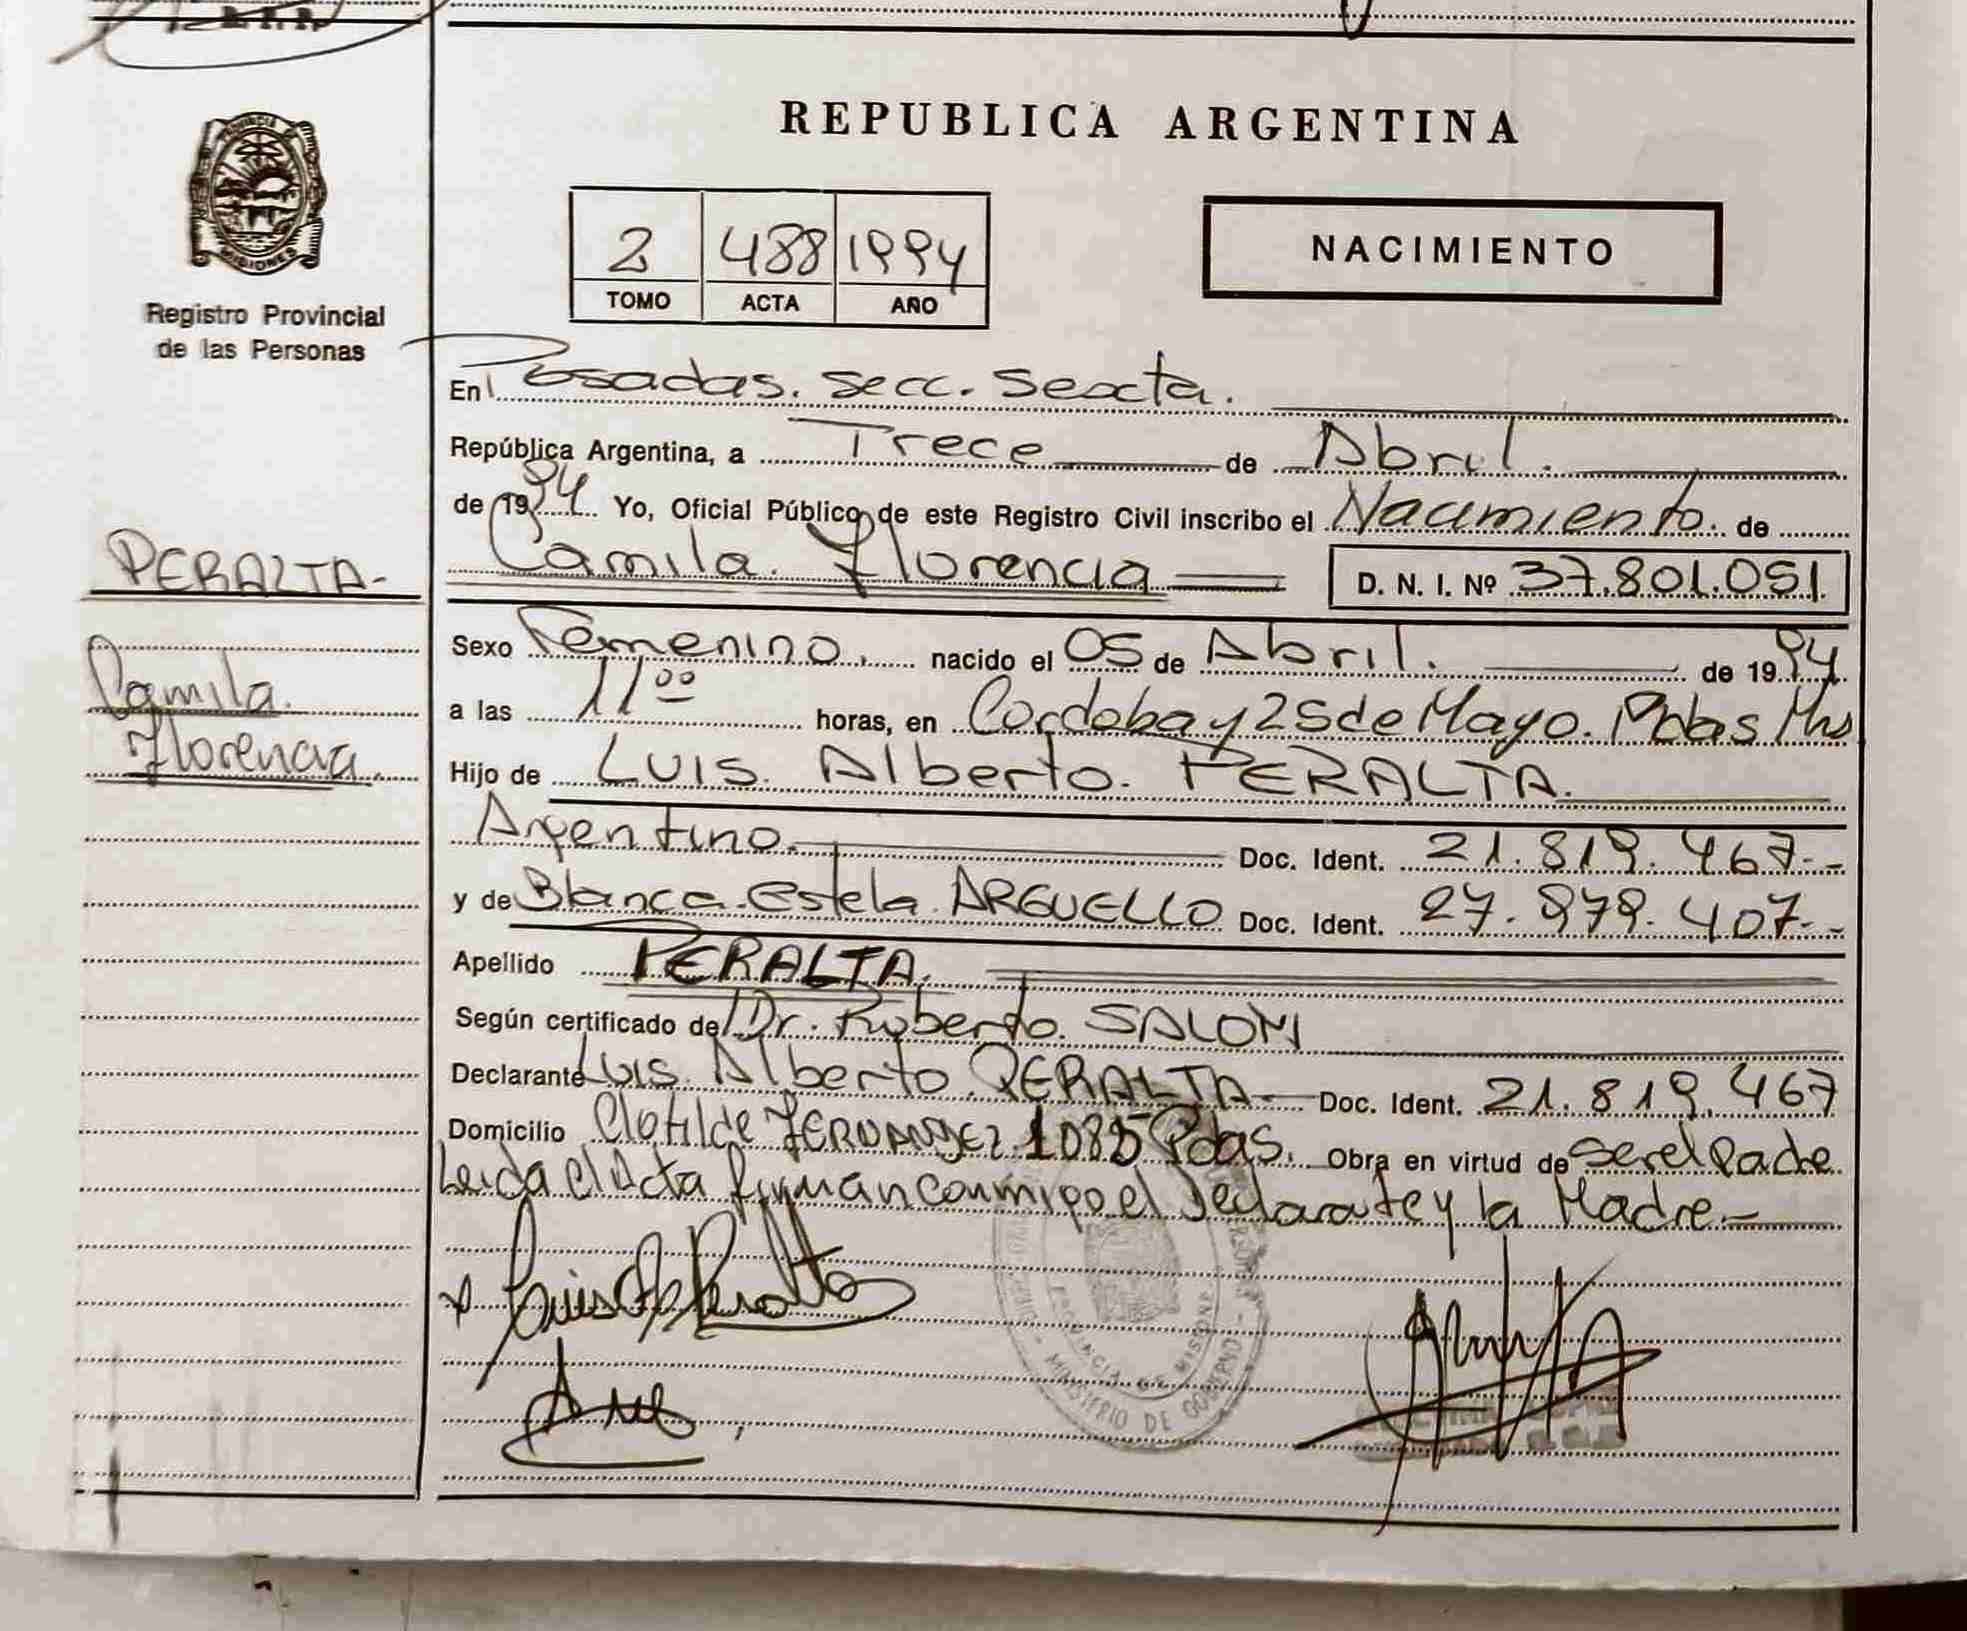 REPUBLICA ARGENTINA
PROVINCIA DE MISIONES
Registro Provincial
de las Personas
2 488 1994
TOMO ACTA AÑO
NACIMIENTO
En Posadas. secc. Sexta.
República Argentina, a Trece de Abril.
de 1994 Yo, Oficial Público de este Registro Civil inscribo el Nacimiento. de
Camila. Florencia D. N. I. Nº 37.801.051
PERALTA-
Camila.
Florencia.
Sexo Femenino. nacido el 05 de Abril. de 1994
a las 11 00 horas, en Cordoba y 25 de Mayo. Pdas Mns
Hijo de Luis. Alberto. PERALTA.
Argentino. Doc. Ident. 21.819.467.-
y de Blanca. Estela. ARGUELLO Doc. Ident. 27.979.407.-
Apellido PERALTA.
Según certificado de Dr. Roberto. SALOM
Declarante Luis. Alberto. PERALTA Doc. Ident. 21.819.467
Domicilio Clotilde Fernandez 1085 Pdas. Obra en virtud de ser el Padre
Leida el Acta firman conmigo el declarante y la Madre.-
Luis A Peralta
PROVINCIA DE MISIONES
MINISTERIO DE GOBIERNO